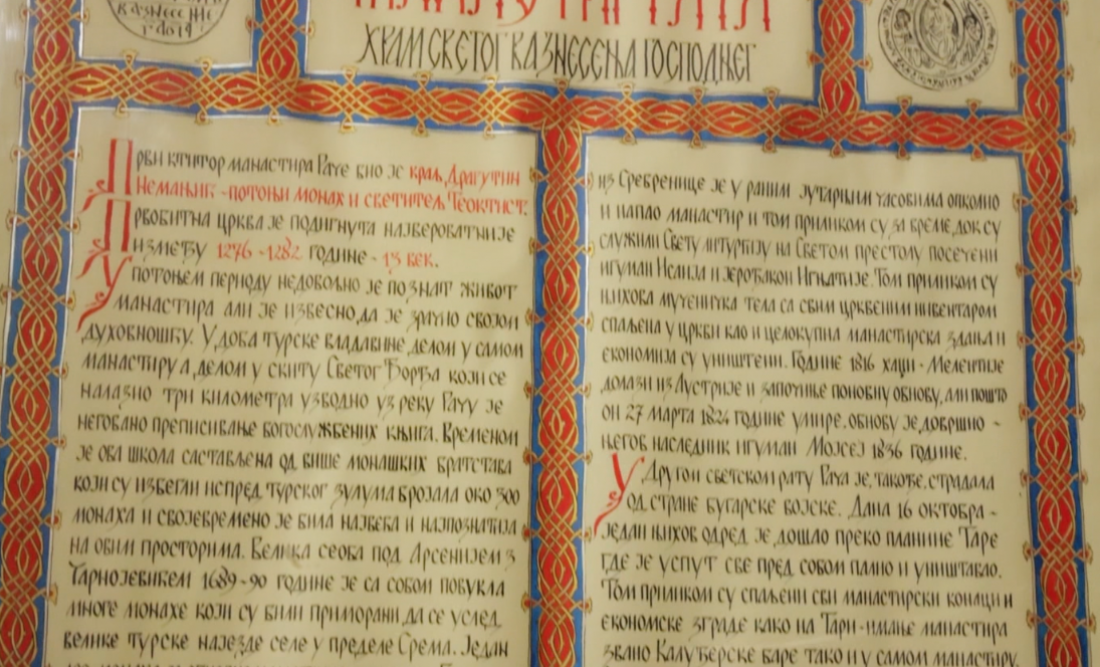 вазнесени
ХРАМ СВЕТОГ ВАЗНЕСЕЊА ГОСПОДЊЕГ
Први ктитор манастира Раче био је краљ Драгутин
Немањић - потоњи монах и светитељ Теоктист.
Првобитна црква је подигнута највероватније
између 1276 - 1282 године - 13 век.
У потоњем периоду недовољно је познат живот
манастира али је извесно да је зрачио својом
духовношћу. У доба турске владавине, делом у самом
манастиру а делом у скиту Светог Ђорђа који се
налазио три километра узводно уз реку Рачу је
неговано преписивање богослужбених књига. Временом
је ова школа састављена од више монашких братстава
који су избегли испред турског зулума бројала око 300
монаха и својевремено је била највећа и најпознатија
на овим просторима. Велика сеоба под Арсенијем 3
Чарнојевићем 1689-90 године је са собом повукла
многе монахе који су били приморани да се услед
велике турске најезде селе у пределе Срема. Један
из Сребренице је у раним јутарњим часовима опколио
и напао манастир и том приликом су за време док су
служили Свету литургију на Светом престолу посечени
игуман Исаија и јерођакон Игњатије. Том приликом су
њихова мученичка тела са свим црквеним инвентаром
спаљена у цркви као и целокупна манастирска здања и
економија су уништени. Године 1816 хаџи - Мелентије
долази из Аустрије и започиње поновну обнову, али пошто
он 27 марта 1824 године умире, обнову је довршио -
његов наследник игуман Мојсеј 1836 године.
У Другом светском рату Рача је, такође, страдала
од стране бугарске војске. Дана 16 октобра -
један њихов одред је дошло преко планине Таре
где је успут све пред собом палио и уништавао.
Том приликом су спаљени сви манастирски конаци и
економске зграде како на Тари - имање манастира
звано Калуђерске баре тако и у самом манастиру.